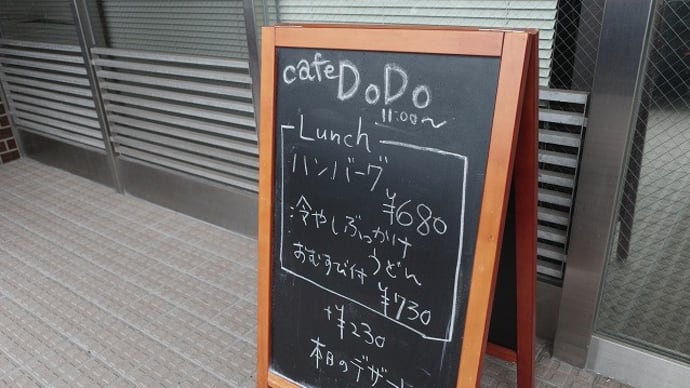 cafe DoDo
11:00〜
Lunch
ハンバーグ
¥680
冷やしぶっかけ
うどん
おむすび付
¥730
+¥230
本日のデザート